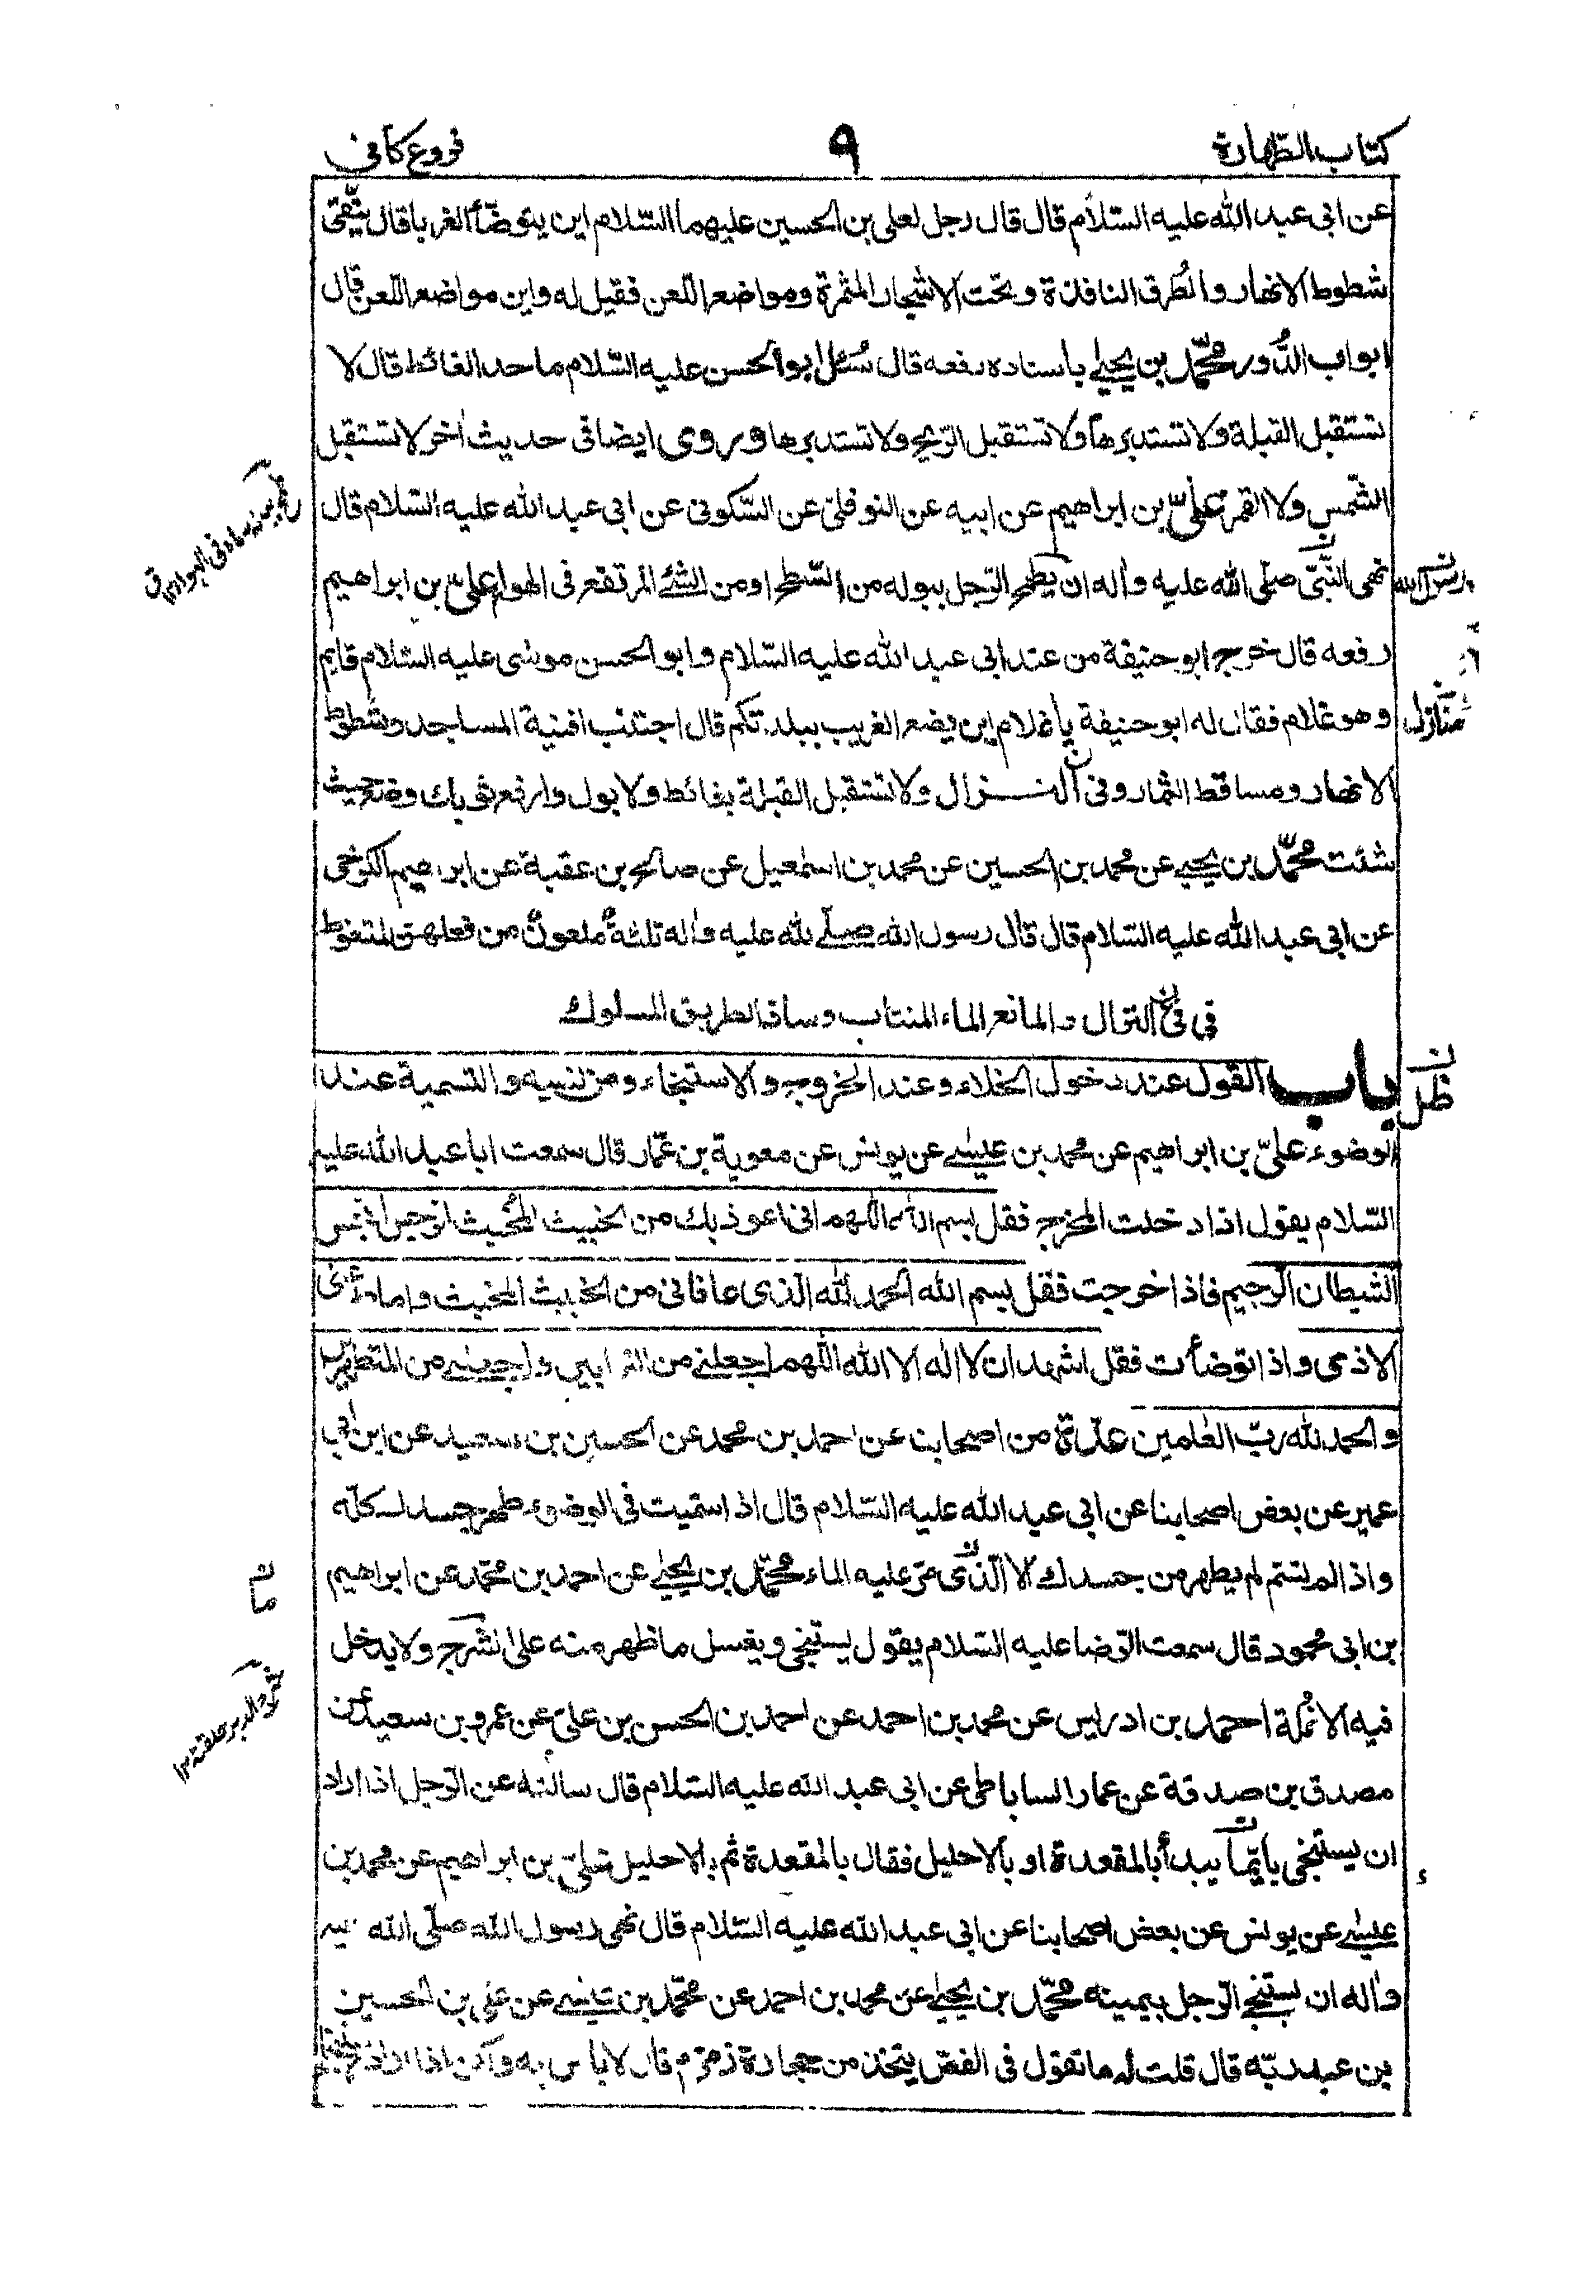 كتاب الطهارة ٩ فروع كافى
عن ابى عبد الله عليه السّلام قال قال رجل لعلى بن الحسين عليهما السّلام اين يتوضّأ الغربا قال يتّقى
شطوط الانهار والطُرق النافذة وتحت الاشجار المثمرة ومواضع اللّعن فقيل له واين مواضع اللّعن قال
ابواب الدُّور محمّد بن يحيىٰ باسناده رفعه قال سُئل ابو الحسن عليه السّلام ما حد الغائط قال لا
تستقبل القبلة ولا تستدبرها ولا تستقبل الرّيح ولا تستدبرها وروى ايضا فى حديث اخر لا تستقبل
الشّمس ولا القمر علىّ بن ابراهيم عن ابيه عن النوفلى عن السّكونى عن ابى عبد الله عليه السّلام قال
نهى النّبىّ صلّى الله عليه واٰله ان يطمح الرّجل ببوله من السّطح او من الشئ المرتفع فى الهواء علىّ بن ابراهيم
رسول الله
رفعه قال خرج ابو حنيفة من عند ابى عبد الله عليه السّلام وابو الحسن موسٰى عليه السّلام قايم
وهو غلام فقال له ابو حنيفة يا غلام اين يضع الغريب ببلدتكم قال اجتنب افنية المساجد وشطوط
منازل
الانهار ومساقط الثمار وفى النزال ولا تستقبل القبلة بغائط ولا بول وارفع ثوبك وضع حيث
شئت محمّد بن يحيى عن محمد بن الحسين عن محمد بن اسمٰعيل عن صالح بن عقبة عن ابراهيم الكرخى
عن ابى عبد الله عليه السّلام قال قال رسول الله صلّى الله عليه واٰله ثلثةٌ ملعونٌ من فعلهنّ المتغوّط
فى ظلّ النزال والمانع الماء المنتاب وساد الطريق المسلوك
باب القول عند دخول الخلاء وعند الخروج والاستنجاء ومن نسيه والتسمية عند
ظل
الوضوء علىّ بن ابراهيم عن محمد بن عيسٰى عن يونس عن معوية بن عمّار قال سمعت ابا عبد الله عليه
السّلام يقول اذا دخلت المخرج فقل بسم الله اللّهم انى اعوذ بك من الخبيث المُخبث الرجس النجس
الشيطان الرجيم فاذا خرجت فقل بسم الله الحمد لله الّذى عافانى من الخبيث المخبث واماط عنّى
الاذى واذا توضأت فقل اشهد ان لا اله الا الله اللّهم اجعلنى من التوابين واجعلنى من المتطهرين
والحمد لله ربّ العٰلمين عدّة من اصحابنا عن احمد بن محمد عن الحسين بن سعيد عن ابن ابى
عمير عن بعض اصحابنا عن ابى عبد الله عليه السّلام قال اذا سمّيت فى الوضوء طهر جسدك كلّه
واذا لم تسم لم يطهر من جسدك الا الّذى مرّ عليه الماء محمّد بن يحيىٰ عن احمد بن محمّد عن ابراهيم
ما
بن ابى محمود قال سمعت الرّضا عليه السّلام يقول يستنجى ويغسل ما ظهر منه على الشرج ولا يدخل
فيه الانملة احمد بن ادريس عن محمد بن احمد عن احمد بن الحسن بن علىّ عن عمرو بن سعيد عن
مصدق بن صدقة عن عمار الساباطى عن ابى عبد الله عليه السّلام قال سالته عن الرّجل اذا اراد
ان يستنجى بايّما يبدأ بالمقعدة او بالاحليل فقال بالمقعدة ثم بالاحليل علىّ بن ابراهيم عن محمد بن
عيسٰى عن يونس عن بعض اصحابنا عن ابى عبد الله عليه السّلام قال نهى رسول الله صلّى الله عليه
واٰله ان يستنجى الرّجل بيمينه محمّد بن يحيىٰ عن محمد بن احمد عن محمّد بن عيسٰى عن على بن الحسين
بن عبد ربّه قال قلت له ما تقول فى الفصّ يتخذ من حجارة زمزم قال لا باس به ولكن اذا اراد